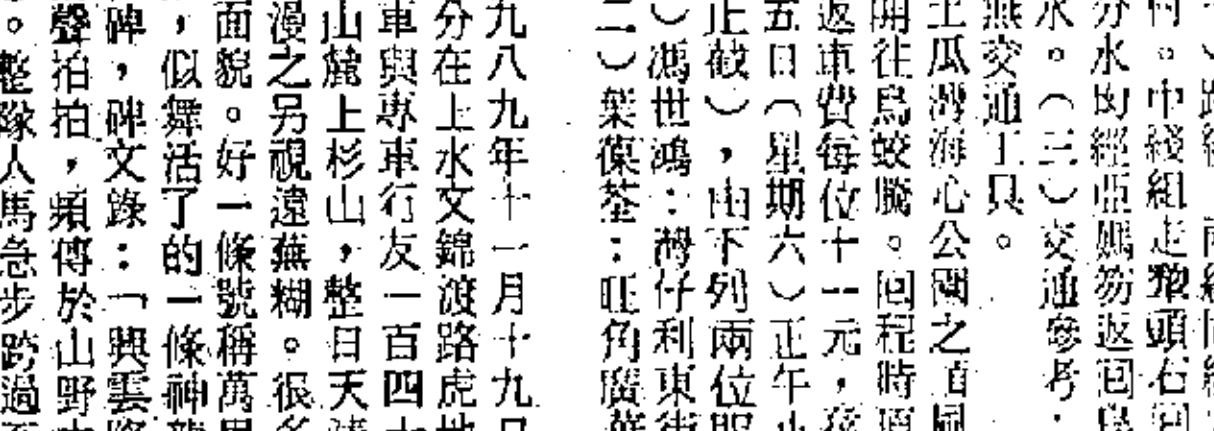 村。中綫組走犂頭石
分水凹經亞媽笏返回烏
水。（三）交通參考：
無交通工具。
土瓜灣海心公園之
開往烏蛟騰。回程時須
返車費每位十一元，夜
五日（星期六）正午止
止截），由下列兩位服
）馮世鴻：灣仔利東街
二）葉葆荃：旺角廣華
九八九年十一月十九日
分在上水文錦渡路虎地
車與專車行友一百四十
山麓上杉山，整日天清
漫之另視遠蕪糊。很多
面貌。好一條號稱萬里
，似舞活了的一條神龍
碑，碑文錄：「興雲降
聲拍拍，頻傳於山野中
。整隊人馬急步跨過